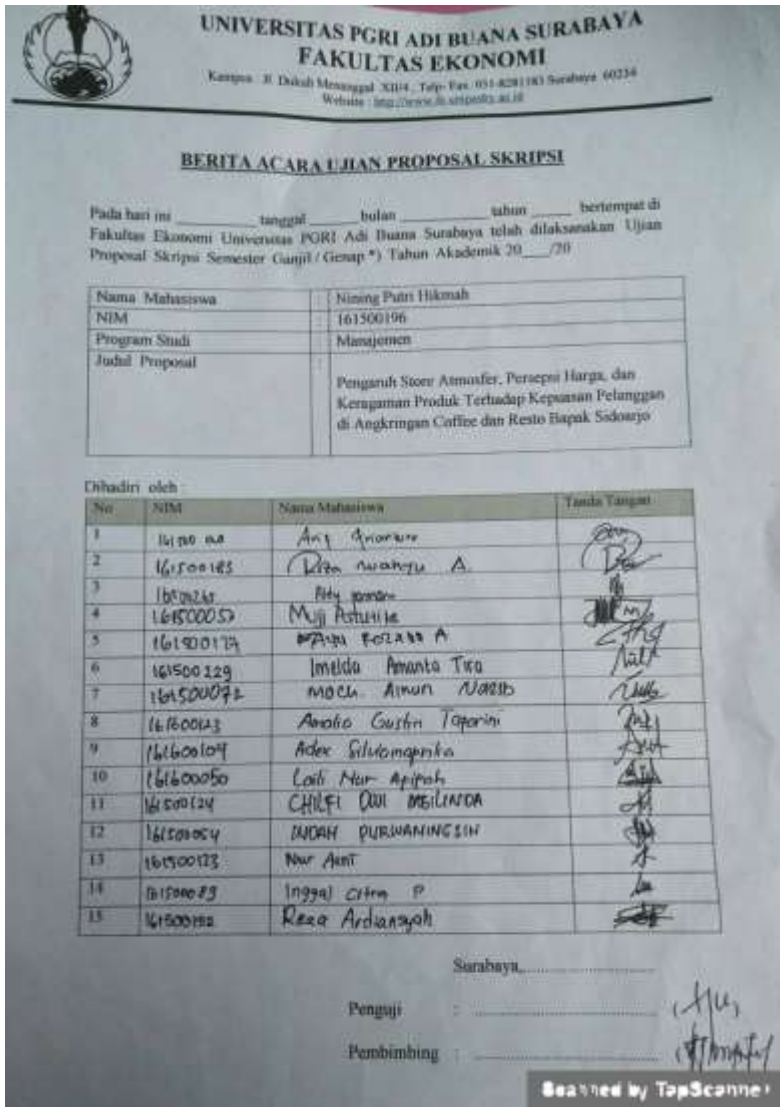 UNIVERSITAS PGRI ADI BUANA SURABAYA
FAKULTAS EKONOMI
Kampus : Jl. Dukuh Menanggal XII/4, Telp- Fax. 031-8281183 Surabaya 60234
Website :
BERITA ACARA UJIAN PROPOSAL SKRIPSI
Pada hari ini __________ tanggal ______ bulan __________ tahun _____ bertempat di
Fakultas Ekonomi Universitas PGRI Adi Buana Surabaya telah dilaksanakan Ujian
Proposal Skripsi Semester Ganjil / Genap *) Tahun Akademik 20___/20
Nama Mahasiswa : Nining Putri Hikmah
NIM : 161500196
Program Studi : Manajemen
Judul Proposal :
Pengaruh Store Atmosfer, Persepsi Harga, dan
Keragaman Produk Terhadap Kepuasan Pelanggan
di Angkringan Coffee dan Resto Bapak Sidoarjo
Dihadiri oleh :
No NIM Nama Mahasiswa Tanda Tangan
1
2 161500185 A
3
4 161500057 Muji
5 A
6 161500229 Imelda Amanta Tira
7 161500072 MOCH. Ainun
8 Gustin
9 161600104 Adex
10 161600050 Laili Nur
11 161500124 CHILFI DWI MEILINDA
12 161500054 INDAH PURWANINGSIH
13 161500123 Nur
14 161500083 Inggal Citra P
15 Reza Ardiansyah
Surabaya,
Penguji :
Pembimbing :
Scanned by TapScanner